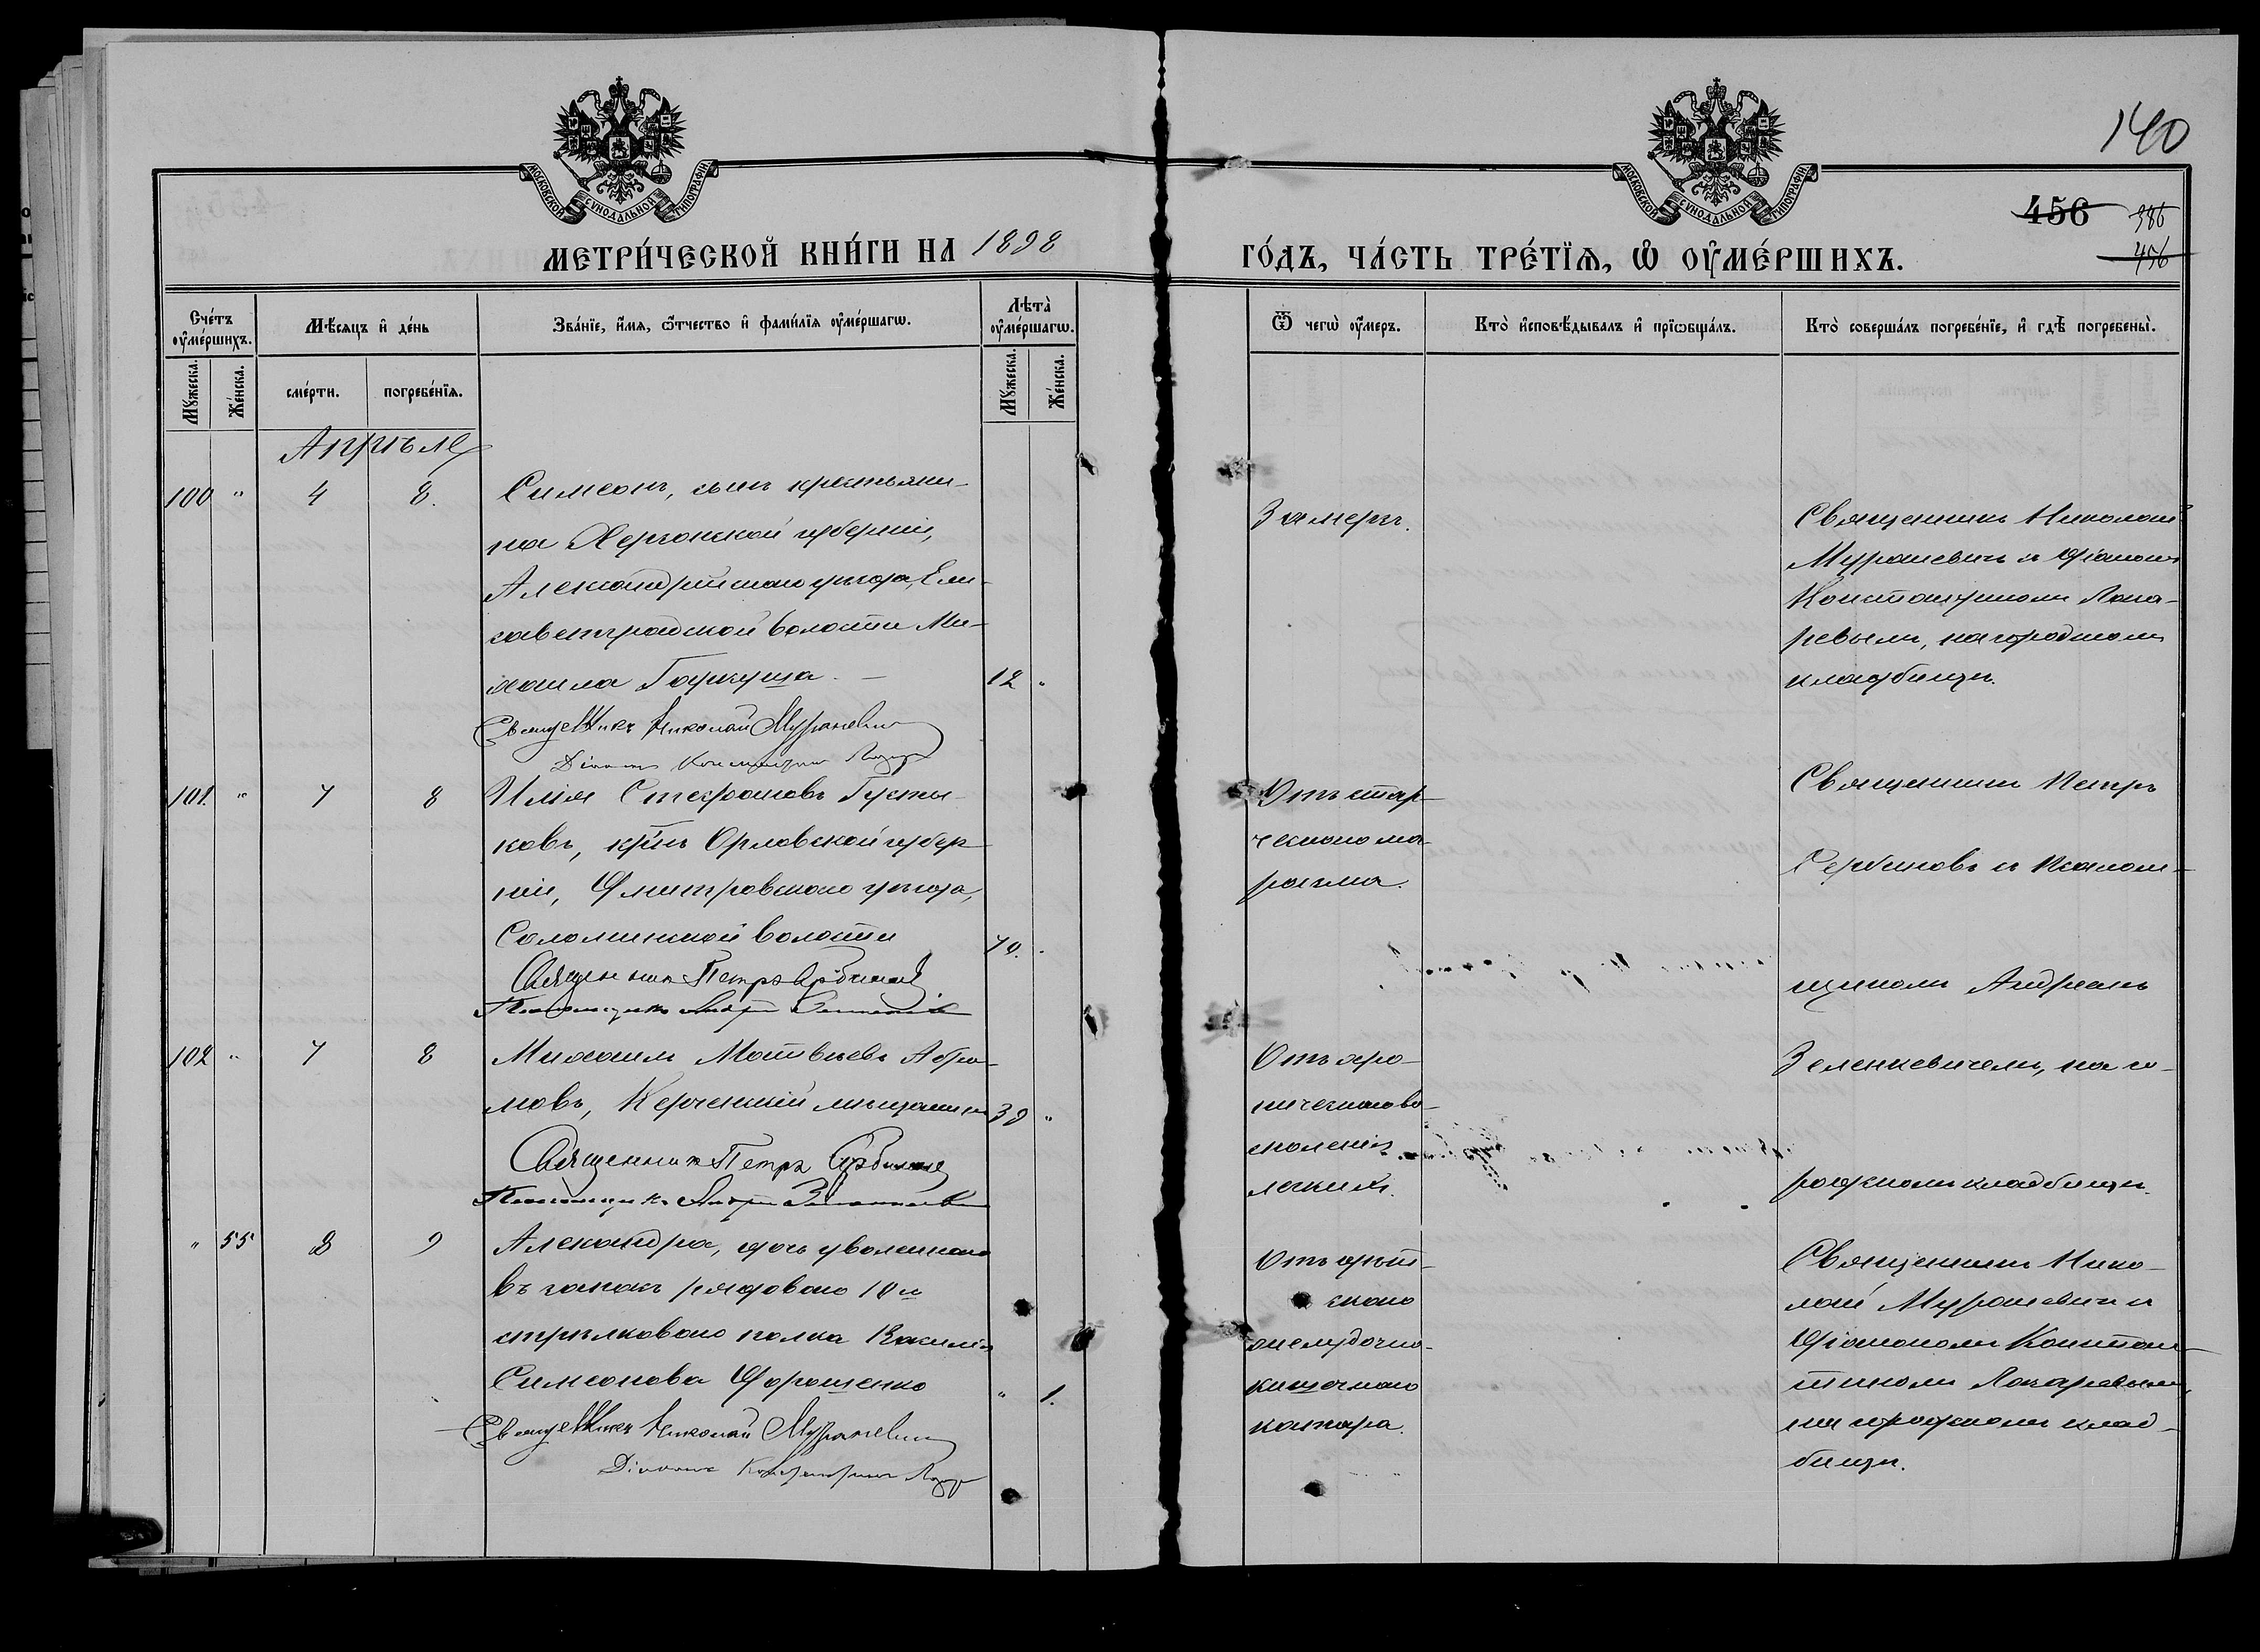 140
МОСКОВСКОЙ СУНОДАЛЬНОЙ ТИПОГРАФІИ.
МОСКОВСКОЙ СУНОДАЛЬНОЙ ТИПОГРАФІИ.
456 986
456
МЕТРИ́ЧЕСКОЙ КНИ́ГИ НА 1898
ГО́ДЪ, ЧА́СТЬ ТРЕ́ТЇѦ, Ѡ ОУ҆МЕ́РШИХЪ.
Сче́тъ оу҆ме́ршихъ.
Мѣ́сяцъ и҆ де́нь
Зва́нїе, и҆́мя, ѻ҆́тчество и҆ фами́лїя оу҆ме́ршагѡ.
Лѣта̀ оу҆ме́ршагѡ.
Ѿ чегѡ̀ оу҆́меръ.
Кто̀ и҆сповѣ́дывалъ и҆ прїѡбща́лъ.
Кто̀ соверша́лъ погребе́нїе, и҆ гдѣ̀ погребены̀.
Мꙋ́жеска. Же́нска. сме́рти. погребе́нїя. Мꙋ́жеска. Же́нска.
Апрѣль
100 " 4 8. Симеонъ, сынъ крестьяни-
на Херсонской губерніи,
Александрійскаго уѣзда, Ели-
саветградской волости Ми-
хаила Гаркуша. — 12 "
Священникъ Николай Мураневич
Діаконъ Константинъ
Замерзъ.
Священникъ Николай
Мураневичъ и діаконъ
Константиномъ Лаза-
ревымъ, на городскомъ
кладбищѣ.
101. " 7 8 Илія Стефановъ Густы-
ковъ, кр-нъ Орловской губер-
ніи, Дмитровскаго уѣзда,
Соломинской волости 70. "
Священникъ Петръ Сербиновъ
Псаломщикъ Андрей Зеленкевичъ
Отъ стар-
ческаго ма-
разма.
Священникъ Петръ
Сербиновъ и Псалом-
щикомъ Андреемъ
Зеленкевичемъ, на го-
родскомъ кладбищѣ.
102 " 7 8 Михаилъ Матвѣевъ Абра-
мовъ, Керченскій мѣщанинъ 39 "
Священникъ Петръ Сербиновъ
Псаломщикъ Андрей Зеленкевичъ
Отъ хро-
ническаго во-
спаленія
легкихъ.
" 55 8 9 Александра, дочь уволеннаго
въ запасъ рядоваго 10 го
стрѣлковаго полка Василія
Симеонова Дорошенко " 1.
Священникъ Николай Мураневич
Діаконъ Константинъ
Отъ дѣт-
скаго
желудочно-
кишечнаго
катара.
Священникъ Нико-
лай Мураневичъ и
Діакономъ Констан-
тиномъ Лазаревымъ,
на городскомъ клад-
бищѣ.